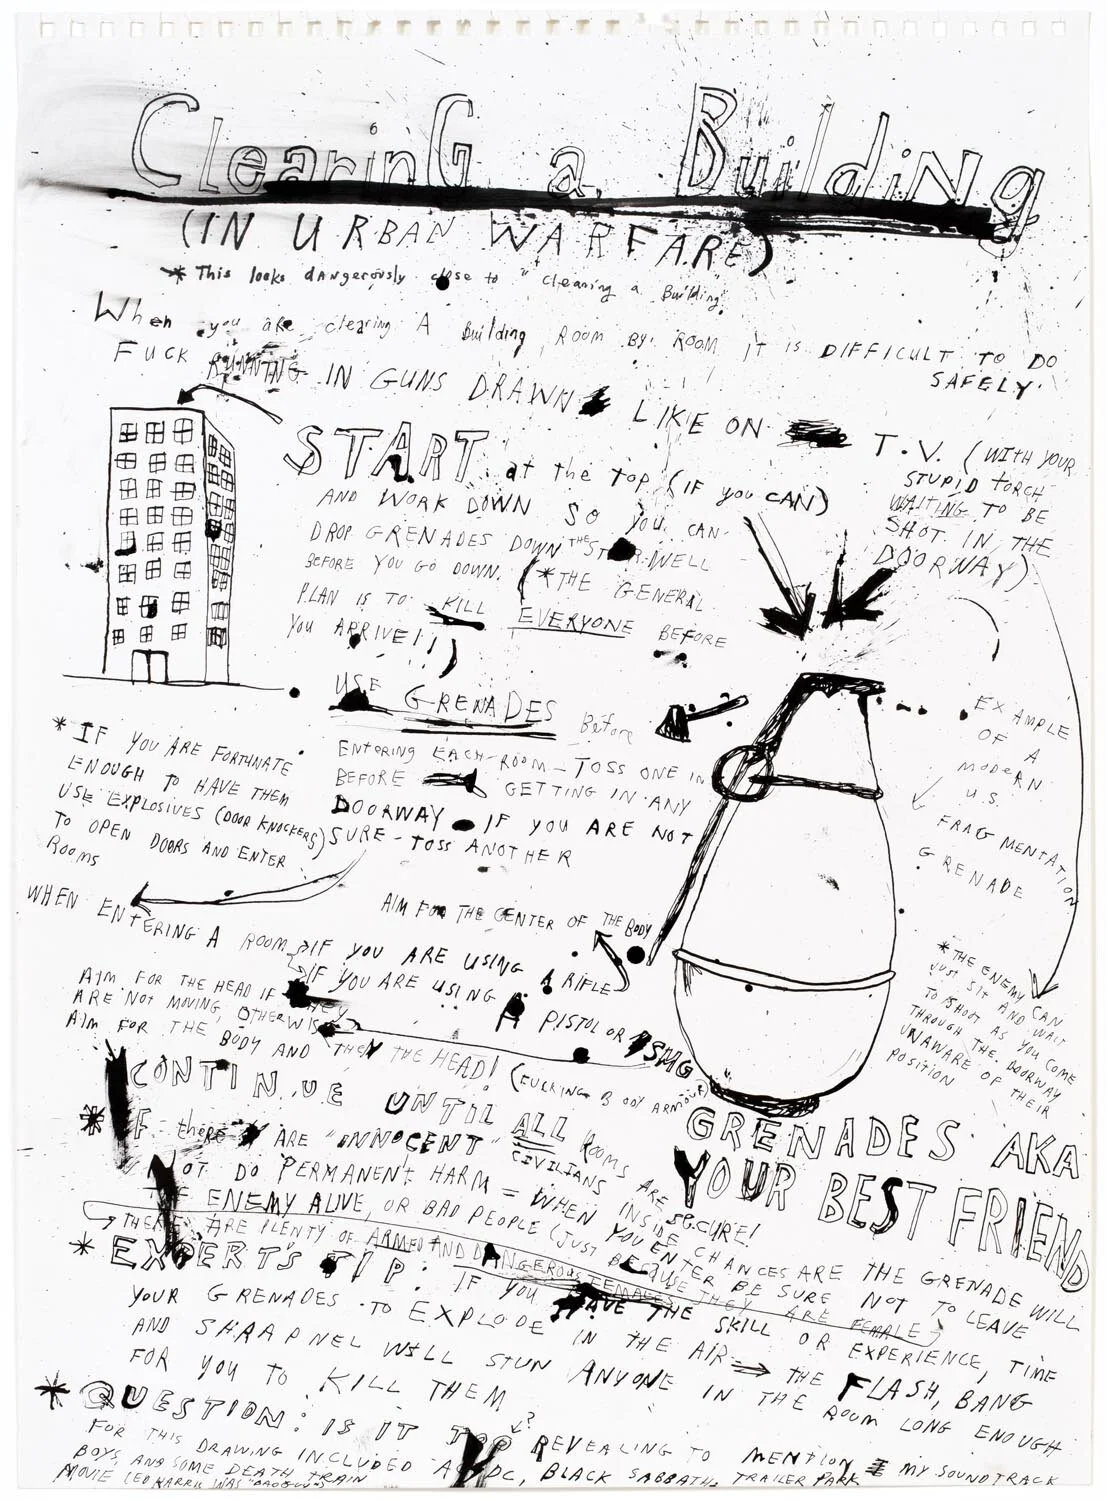 ClearinG a BuildiNg
(IN URBAN WARFARE)
* This looks dANgerously close to "cleaning a Building"
When you are clearing A Building ROOM BY ROOM IT IS DIFFICULT TO DO
SAFELY.
FUCK RUNNING IN GUNS DRAWN LIKE ON T.V. (WITH YOUR
STUPID TORCH
WAITING TO BE
SHOT IN THE
DOORWAY)
START at the top (IF you CAN)
AND WORK DOWN SO you CAN
DROP GRENADES DOWN THE STAIRWELL
BEFORE YOU GO DOWN. (*THE GENERAL
PLAN IS TO KILL EVERYONE BEFORE
You ARRIVE!!)
USE GRENADES Before
ENTERING EACH ROOM - TOSS ONE IN
BEFORE GETTING IN ANY
DOORWAY IF YOU ARE NOT
SURE - TOSS ANOTHER
EXAMPLE
OF A
MODERN
U.S.
FRAGMENTATION
GRENADE
* IF YOU ARE FORTUNATE
ENOUGH TO HAVE THEM
USE EXPLOSIVES (DOOR KNOCKERS)
TO OPEN DOORS AND ENTER
ROOMS
WHEN ENTERING A ROOM
AIM FOR THE CENTER OF THE BODY
IF YOU ARE USING A RIFLE
IF YOU ARE USING A PISTOL OR SMG
AIM FOR THE HEAD IF THEY
ARE NOT MOVING, OTHERWISE
AIM FOR THE BODY AND THEN THE HEAD! (FUCKING BODY ARMOUR)
* THE ENEMY CAN
JUST SIT AND WAIT
TO SHOOT AS YOU COME
THROUGH THE DOORWAY
UNAWARE OF THEIR
POSITION
GRENADES AKA
YOUR BEST FRIEND
CONTINUE UNTIL ALL ROOMS ARE SECURE!
* IF there ARE "INNOCENT" CIVILIANS INSIDE CHANCES ARE THE GRENADE WILL
NOT DO PERMANENT HARM = WHEN YOU ENTER BE SURE NOT TO LEAVE
ENEMY ALIVE, OR BAD PEOPLE (JUST BECAUSE THEY ARE FEMALE)
THERE ARE PLENTY OF ARMED AND DANGEROUS FEMALES
* EXPERT'S TIP: IF YOU HAVE THE SKILL OR EXPERIENCE, TIME
YOUR GRENADES TO EXPLODE IN THE AIR THE FLASH, BANG
AND SHRAPNEL WILL STUN ANYONE IN THE ROOM LONG ENOUGH
FOR YOU TO KILL THEM
* QUESTION: IS IT TOO ? REVEALING TO MENTION MY SOUNDTRACK
FOR THIS DRAWING INCLUDED AC DC, BLACK SABBATH, TRAILER PARK
BOYS, AND SOME DEATH TRAIN
MOVIE